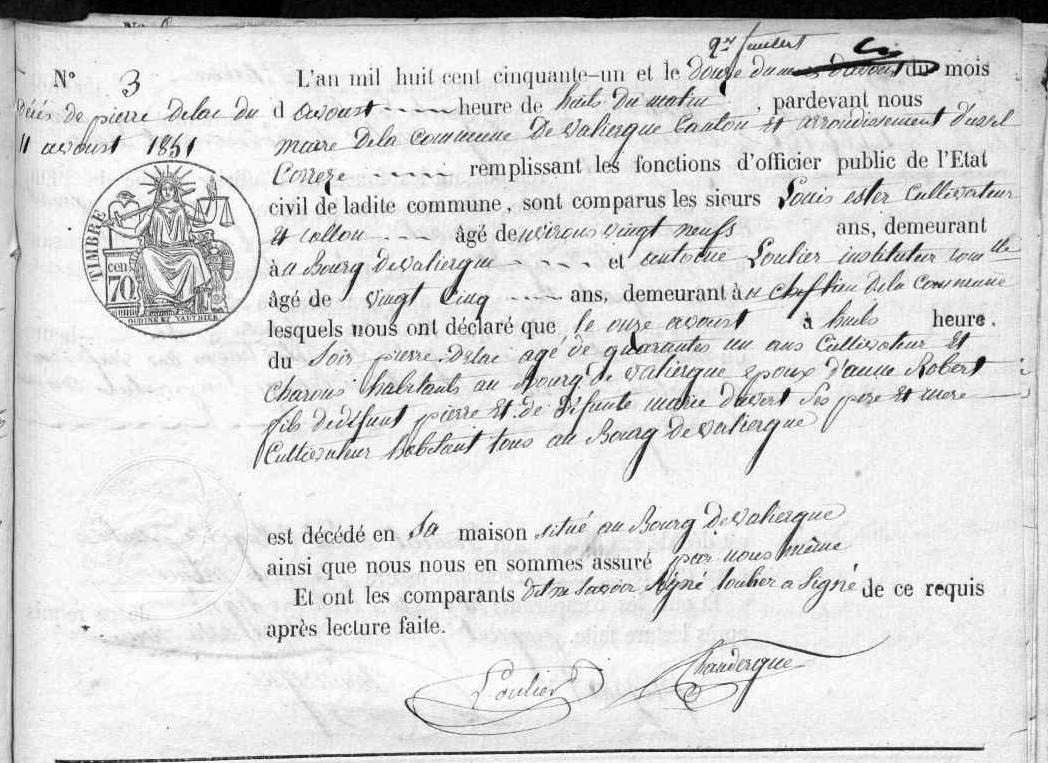 N° 3
L'an mil huit cent cinquante-un et le douze du mois
Décés de pierre delac du
11 avoust 1851
d avoust heure de huits du matin, pardevant nous
maire de la commune De valiergue Canton et arrondissement Dussel
Correze remplissant les fonctions d'officier public de l'Etat
civil de ladite commune, sont comparus les sieurs Louis ester Cultivateur
et collon âgé denvirons vingt neufs ans, demeurant
à a Bourg de valiergue et antoine Loulier instituteur
âgé de vingt cinq ans, demeurant à u chef lieu de la commune
lesquels nous ont déclaré que le onze avoust à huits heure.
du Soir pierre delac agé de quarantes un ans Cultivateur et
charons habitants au Bourg de valiergue epoux d'anne Robert
fils de défunt pierre et de défunte marie duvert Ses pere et mere
Cultivateur habitant tous au Bourg de valiergue
est décédé en Sa maison situé au Bourg De valiergue
ainsi que nous nous en sommes assuré par nous même
Et ont les comparants dit ne savoir Signé loulier a Signé de ce requis
après lecture faite.
Loulier Chandergue
TIMBRE
cen.
70
OUDINÉ ET VAUTHIER